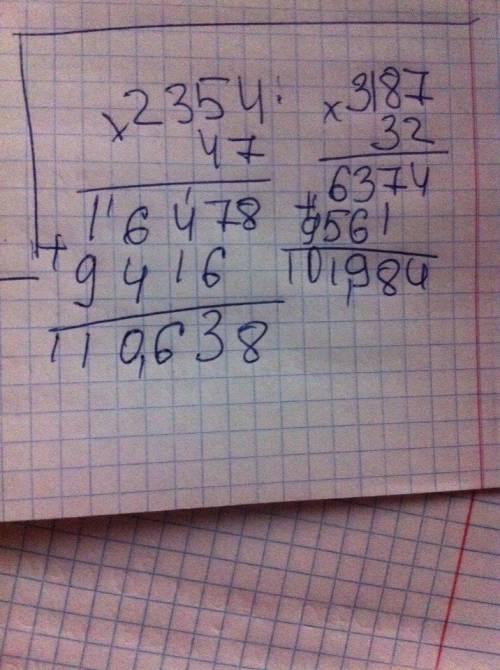 ×2354
47
16478
+
9416
110,638
×3187
32
6374
+
9561
101,984